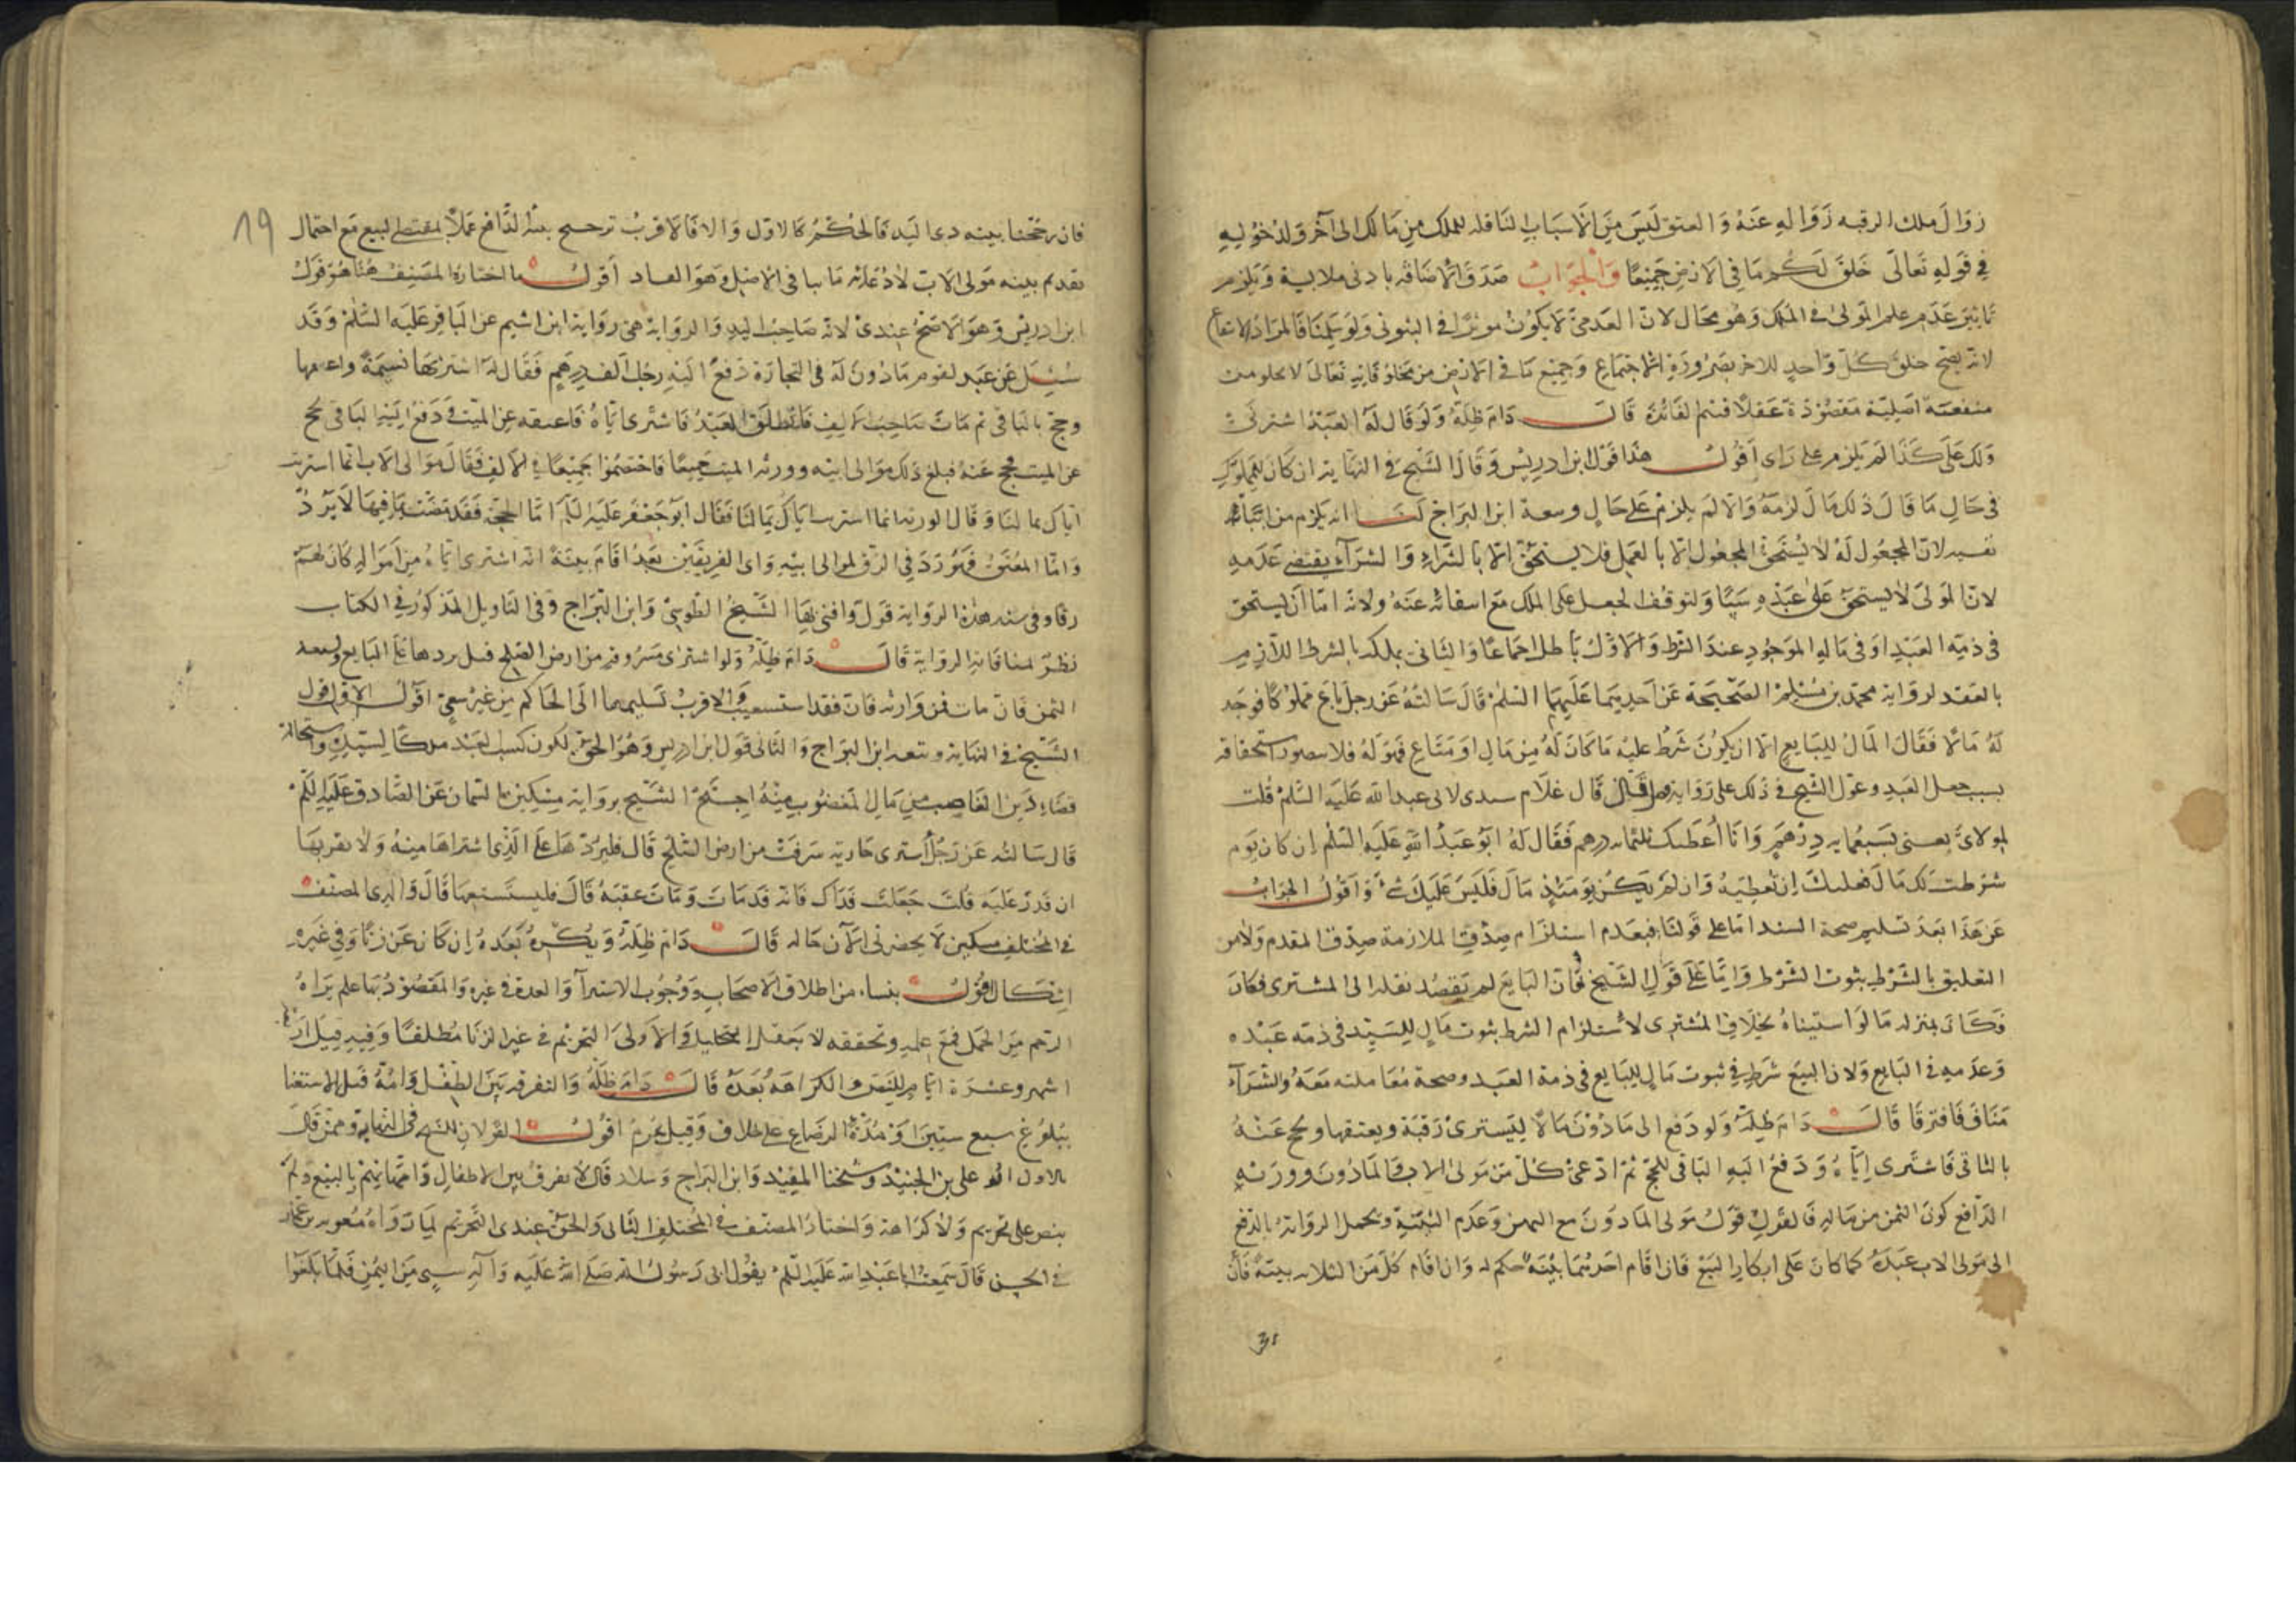 زوال ملك الرقبه زواله عنه والعتق ليس من الاسباب الناقله للملك من مالك الى آخر ولدخوله
في قوله تعالى خلق لكم ما في الارض جميعا والجواب صدق الاضافه بادنى ملابسة ويلزم
تاثير عدم علم المولى في الملك وهو محال لان العدمي لا يكون موثرا في الثبوتي ولو سلمنا فالمراد
لانه يصح خلق كل واحد للاخر بضرورة الاجتماع وجميع ما في الارض من مخلوقاته تعالى لا يخلو من
منفعة اصلية مقصودة عقلا فيتم الفائدة قال دام ظله ولو قال له العبد اشترني
ولك علي كذا لم يلزم على راى اقول هذا قول ابن ادريس وقال الشيخ في النهاية ان كان للمملوك
في حال ما قال ذلك مال لزمه والا لم يلزم على حال وتبعه ابن البراج لنا انه يلزم من اثباته
نفيه لان المجعول له لا يستحق المجعول الا بالعمل فلا يستحق الا بالشراء والشراء يقتضي عدمه
لان المولى لا يستحق على عبده شيئا ولتوقف الجعل على الملك مع انتفائه عنه ولانه اما ان يستحق
في ذمة العبد او في ماله الموجود عند الشرط والاول باطل اجماعا والثاني يملكه بالشرط اللازم
بالعقد لرواية محمد بن مسلم الصحيحة عن احدهما عليهما السلم قال سالته عن رجل باع مملوكا فوجد
له مالا فقال المال للبايع الا ان يكون شرط عليه ما كان له من مال او متاع فهو له فلا يتصور استحقاقه
بسبب جعل العبد وعول الشيخ في ذلك على رواية قال قال غلام سندى لابي عبد الله عليه السلم قلت
لمولاى بعنى بسبعمايه درهم وانا اعطيك ثلثمايه درهم فقال له ابو عبد الله عليه السلم ان كان يوم
شرطت لك مال فعليك ان تعطيه وان لم يكن يومئذ مال فليس عليك شئ واقول الجواب
عن هذا بعد تسليم صحة السند اما على قولنا فبعدم استلزام صدق الملازمة صدق المقدم ولا من
التعليق بالشرط ثبوت الشرط واما على قول الشيخ فان البايع لم يقصد نقله الى المشترى فكان
فكان بمنزله ما لو استثناه بخلاف المشترى لاستلزام الشرط ثبوت مال للسيد في ذمة عبده
وعدمه في البايع ولان البيع شرط في ثبوت مال للبايع في ذمة العبد وصحة معاملته معه والشراء
مناف فافترقا قال دام ظله ولو دفع الى ماذون مالا ليشترى رقبة ويعتقها ويحج عنه
بالثاقى فاشترى اباه ودفع اليه الباقى للحج ثم ادعى كل من مولى الاب والماذون وورثه
الدافع كون الثمن من ماله فالقول قول مولى الماذون مع اليمين وعدم البينة ويحمل الرواية بالدفع
الى مولى الاب عبده كما كان على انكار البيع فان اقام احدهما بينة حكم له وان اقام كل من الثلاثه بينة فان
31
19
فان رجحنا بينه ذى اليد فالحكم كالاول والا فالاقرب ترجيح بينه الدافع عملا بمقتضى البيع مع احتمال
تقديم بينه مولى الاب لادعائه ما ينافى الاصل وهو الفساد اقول ما اختاره المصنف هنا هو قول
ابن ادريس وهو الاصح عندى لانه صاحب اليد والرواية هى رواية ابن اشيم عن الباقر عليه السلم وقد
سئل عن عبد لقوم ماذون له فى التجارة دفع اليه رجل الف درهم فقال له اشتر بها نسمة واعتقها
وحج بالباقى ثم مات صاحب الالف فانطلق العبد فاشترى اباه فاعتقه عن الميت ودفع اليه الباقى يحج
عن الميت فحج عنه فبلغ ذلك موالى ابيه وورثه الميت جميعا فاختصموا جميعا في الالف فقال موالى الاب انما اشتريت
اباك بمالنا وقال الورثه انما اشتريت اباك بمالنا فقال ابو جعفر عليه السلم اما الحجة فقد مضت بما فيها لا يرد
واما المعتق فهو رد في الرق لموالى ابيه واى الفريقين بعد اقام بينة انه اشترى اباه من امواله كان لهم
رقا وفى سند هذه الرواية قول وافتى بها الشيخ الطوسى وابن البراج وفى التاويل المذكور في الكتاب
نظر لمنافاته الرواية قال دام ظله ولو اشترى مسروقه من ارض الصلح قيل يردها على البايع ويستعيد
الثمن فان مات فمن وارثه فان فقد استسعيت والاقرب تسليمها الى الحاكم من غير سعى اقول الاول قول
الشيخ في النهاية وتبعه ابن البراج والثانى قول ابن ادريس وهو الحق لكون كسب العبد ملكا لسيده واستحالة
قضاء دين الغاصب من مال المغصوب منه احتج الشيخ برواية مسكين السمان عن الصادق عليه السلم
قال سالته عن رجل اشترى جارية سرقت من ارض الصلح قال فليردها على الذى اشتراها منه ولا يقربها
ان قدر عليه قلت جعلت فداك فانه قد مات ومات عقبه قال فليستسعها قال والدى المصنف
في المختلف مسكين لا يحضرنى الآن حاله قال دام ظله ويكره بعده ان كان عن زنا وفى غيره
اشكال اقول ينشا من اطلاق الاصحاب ووجوب الاستبرآ والعدة في غيره والمقصود بها علم براه
الرحم من الحمل فمع علمه وتحققه لا يعقل التحليل والاولى التحريم في غير الزنا مطلقا وفيه قيل اربعة
اشهر وعشرة ايام للنص والكراهة بعده قال دام ظله والتفرقه بين الطفل وامه قبل الاستغنا
ببلوغ سبع سنين او مدة الرضاع على خلاف وقيل يحرم اقول القولان للشيخ فى النهاية وممن قال
بالاول ابو على بن الجنيد وشيخنا المفيد وابن البراج وسلار قال لا يفرق بين الاطفال وامهاتهم بالبيع ولم
ينص على تحريم ولا كراهة واختار المصنف في المختلف الثانى والحق عندى التحريم لما رواه معويه بن عمار
في الحسن قال سمعت ابا عبد الله عليه السلم يقول اتى رسول الله صلى الله عليه وآله بسبى من اليمن فلما بلغوا